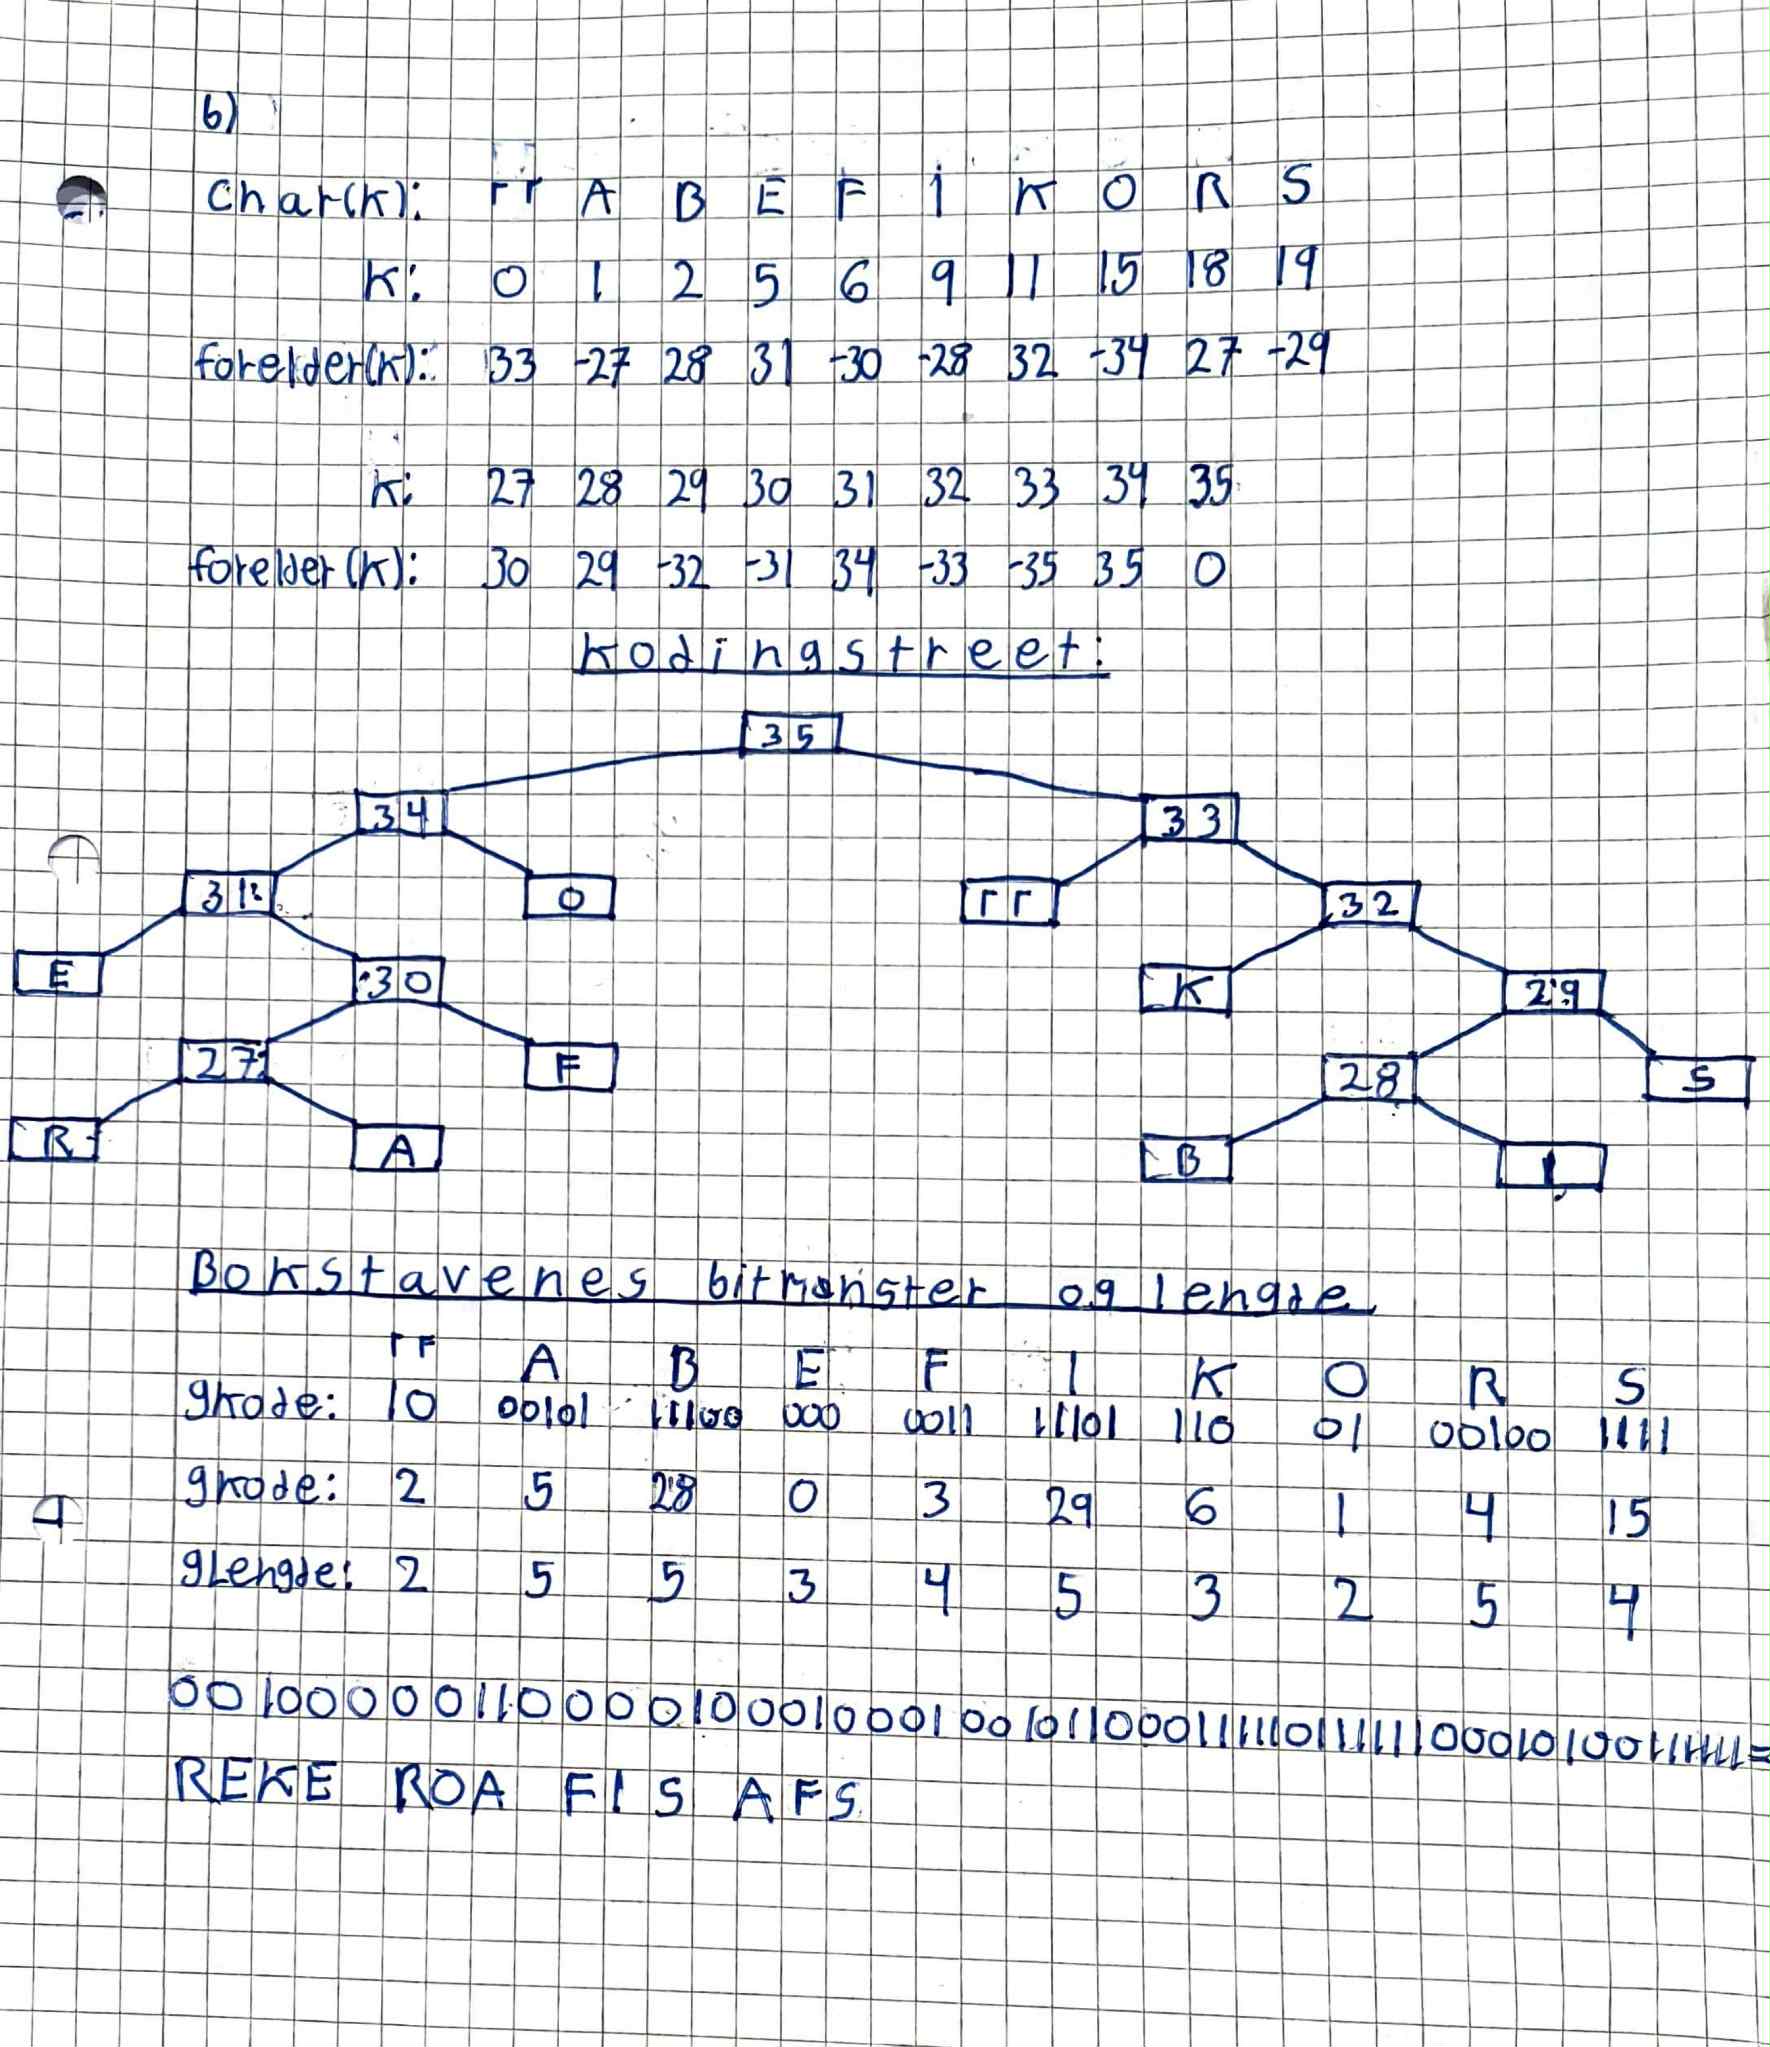 b)
Char(k): " " A B E F I K O R S
k: 0 1 2 5 6 9 11 15 18 19
forelder(k): 33 -27 28 31 -30 -28 32 -34 27 -29
k: 27 28 29 30 31 32 33 34 35
forelder(k): 30 29 -32 -31 34 -33 -35 35 0
Kodingstreet:
35
34 33
31 O " " 32
E 30 K 29
27 F 28 S
R A B I
Bokstavenes bitmønster og lengde
" " A B E F I K O R S
gkode: 10 00101 11100 000 0011 11101 110 01 00100 1111
gkode: 2 5 28 0 3 29 6 1 4 15
gLengde: 2 5 5 3 4 5 3 2 5 4
0010000011000010001000100101100011111011111100010100111111=
REKE ROA FIS AFS